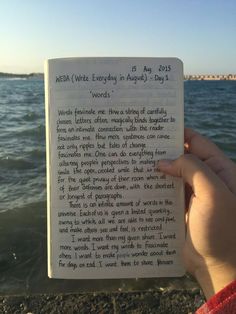 15 Aug 2015
WEDA (Write Everyday in August) - Day 1
'Words'
Words fascinate me. How a string of carefully
chosen letters often magically binds together to
form an intimate connection with the reader
fascinates me. How mere sentences can cause
not only ripples but tides of change
fascinates me. One can do everything from
altering people's perspectives to making
smile the open, creaked smile that is
for the quiet privacy of their room when all
of their defenses are down, with the shortest
or longest of paragraphs.
There is an infinite amount of words in this
universe. Each of us is given a limited quantity,
owing to which all we are able to see and feel,
and make others see and feel, is restricted.
I want more than my given share. I want
more words. I want my words to fascinate
others. I want to make people wonder about them
for days on end. I want them to share